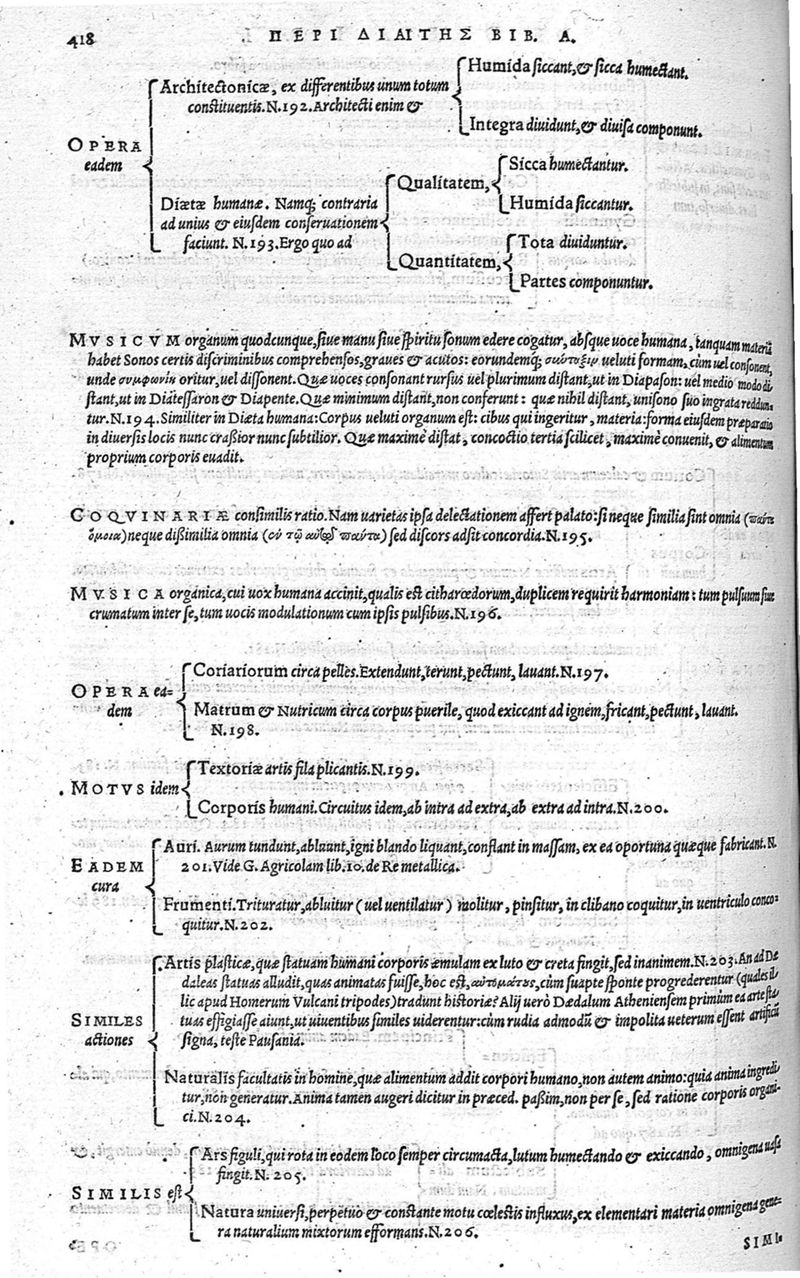 418 ΠΕΡΙ ΔΙΑΙΤΗΣ ΒΙΒ. Α.
Humida siccant, & sicca humectant.
Architectonicæ, ex differentibus unum totum
constituentis. N. 192. Architecti enim &
Integra diuidunt, & diuisa componunt.
OPERA
eadem
Sicca humectantur.
Qualitatem,
Humida siccantur.
Diætæ humanæ. Namq; contraria
ad unius & eiusdem conseruationem
faciunt. N. 193. Ergo quo ad
Tota diuiduntur.
Quantitatem,
Partes componuntur.
MVSICVM organum quodcunque, siue manu siue spiritu sonum edere cogatur, absque uoce humana, tanquam materiã
habet Sonos certis discriminibus comprehensos, graues & acutos: eorundemq; σύνταξιν ueluti formam, cùm uel consonent,
unde συμφωνία oritur, uel dissonent. Quæ uoces consonant rursus uel plurimum distant, ut in Diapason: uel medio modo di
stant, ut in Diatessarωn & Diapente. Quæ minimum distant, non conferunt: quæ nihil distant, unisono suo ingrata reddun-
tur. N. 194. Similiter in Diæta humana: Corpus ueluti organum est: cibus qui ingeritur, materia: forma eiusdem præparatio
in diuersis locis nunc crassior nunc subtilior. Quæ maximè distat, concoctio tertia scilicet, maximè conuenit, & alimentum
proprium corporis euadit.
COQVINARIÆ consimilis ratio. Nam uarietas ipsa delectationem affert palato: si neque similia sint omnia (πάντα
ὅμοια) neque dissimilia omnia (οὐ τῷ αὐτῷ πάντα) sed discors adsit concordia. N. 195.
MVSICA organica, cui uox humana accinit, qualis est citharœdorum, duplicem requirit harmoniam: tum pulsuum siue
crumatum inter se, tum uocis modulationum cum ipsis pulsibus. N. 196.
Coriariorum circa pelles. Extendunt, terunt, pectunt, lauant. N. 197.
OPERA ea-
dem
Matrum & Nutricum circa corpus puerile, quod exiccant ad ignem, fricant, pectunt, lauant.
N. 198.
Textoriæ artis fila plicantis. N. 199.
MOTVS idem
Corporis humani. Circuitus idem, ab intra ad extra, ab extra ad intra. N. 200.
Auri. Aurum tundunt, abluunt, igni blando liquant, conflant in massam, ex ea oportuna quæque fabricant. N.
201. Vide G. Agricolam lib. 10. de Re metallica.
EADEM
cura
Frumenti. Trituratur, abluitur (uel uentilatur) molitur, pinsitur, in clibano coquitur, in uentriculo conco-
quitur. N. 202.
Artis plasticæ, quæ statuam humani corporis æmulam ex luto & creta fingit, sed inanimem. N. 203. An ad Dæ
daleas statuas alludit, quas animatas fuisse, hoc est, αὐτομάτους, cùm suapte sponte progrederentur (quales il
lic apud Homerum Vulcani tripodes) tradunt historiæ? Alij uerò Dædalum Atheniensem primùm ea arte sta
tuas effigiasse aiunt, ut uiuentibus similes uiderentur: cùm rudia admodũ & impolita ueterum essent artificũ
signa, teste Pausania.
SIMILES
actiones
Naturalis facultatis in homine, quæ alimentum addit corpori humano, non autem animo: quia anima ingredi-
tur, non generatur. Anima tamen augeri dicitur in præced. passim, non per se, sed ratione corporis organi-
ci. N. 204.
Ars figuli, qui rota in eodem loco semper circumacta, lutum humectando & exiccando, omnigena uasa
fingit. N. 205.
SIMILIS est
Natura uniuersi, perpetuo & constante motu cœlestis influxus, ex elementari materia omnigena gene-
ra naturalium mixtorum efformans. N. 206.
SIMI-